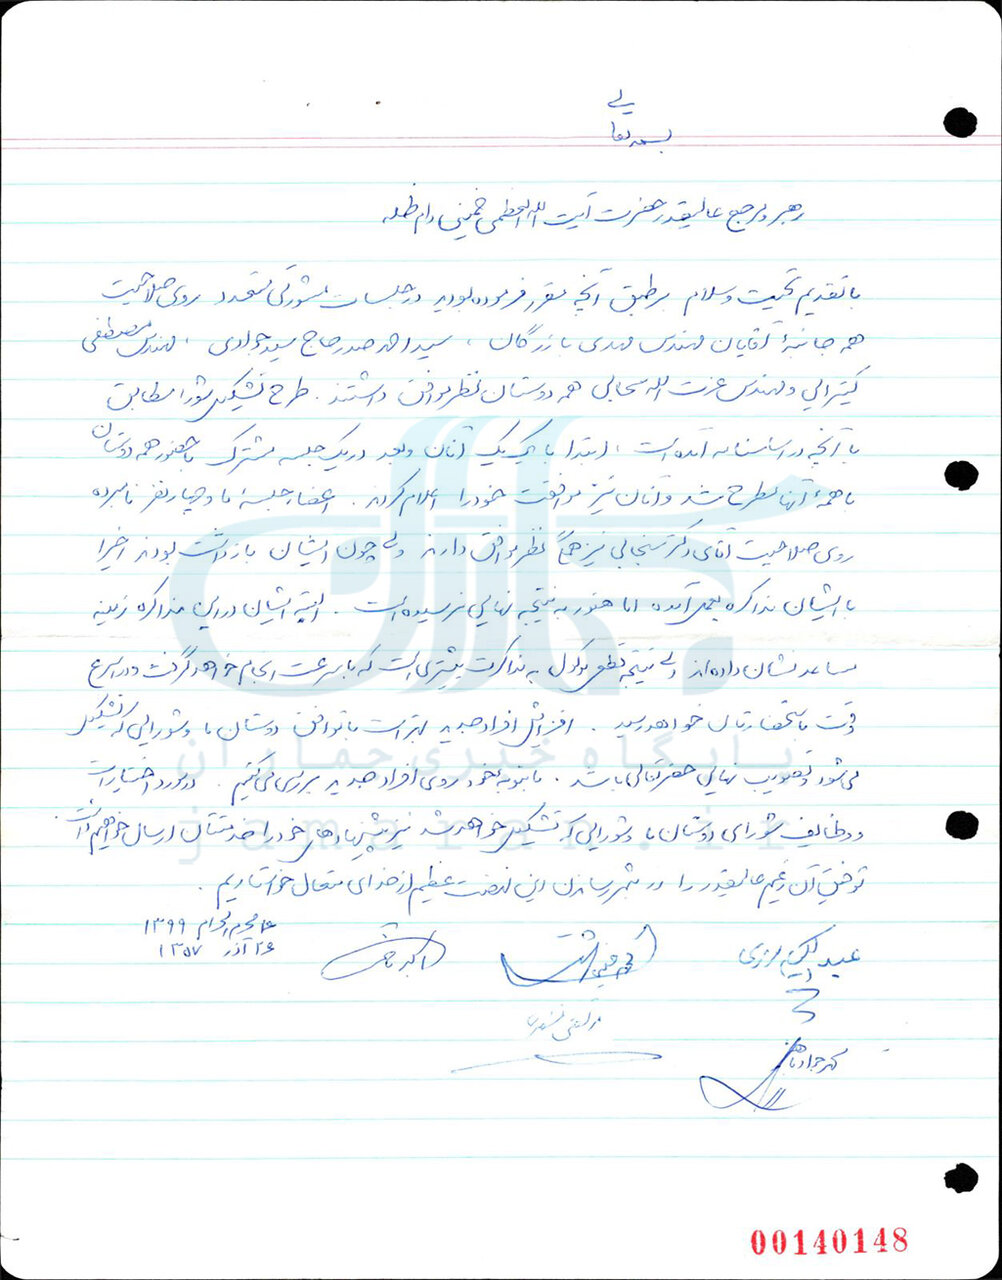 بسمه تعالی
رهبر و مرجع عالیقدر حضرت آیت الله العظمی خمینی دام ظله
با تقدیم تحیت و سلام برطبق آنچه مقرر فرموده بودید در جلسات مشورتی متعدد روی صلاحیت
همه جانبهٔ آقایان مهندس مهدی بازرگان ، سید احمد صدر حاج سید جوادی ، مهندس مصطفی
کتیرائی و مهندس عزت الله سحابی همه دوستان نظر موافق داشتند . طرح تشکیل شورا مطابق
با آنچه در اساسنامه آمده است ، ابتدا با یک یک آنان و بعد در یک جلسه مشترک با حضور همه دوستان
با همهٔ آنها مطرح شد و آنان نیز موافقت خود را اعلام کردند . اعضاء جلسهٔ ما و چهار نفر نامبرده
روی صلاحیت آقای دکتر سنجابی نیز همگی نظر موافق دارند ولی چون ایشان بازداشت بودند اخیرا
با ایشان مذاکره بعمل آمده اما هنوز به نتیجه نهایی نرسیده است . البته ایشان در این مذاکره زمینه
مساعد نشان داده‌اند ولی نتیجه قطعی موکول به مذاکرات بیشتری است که با سرعت انجام خواهد گرفت و در اسرع
وقت باستحضارتان خواهد رسید . افزایش افراد جدید بهتر است با توافق دوستان ما و شورایی که تشکیل
می‌شود و تصویب نهایی حضرتعالی باشد . ما بنوبه خود روی افراد جدید بررسی می‌کنیم . در مورد اختیارات
و وظائف شورای دوستان ما و شورایی که تشکیل خواهد شد نیز پیشنهادهای خود را خدمتتان ارسال خواهیم داشت .
توفیق آن زعیم عالیقدر را در بثمر رساندن این نهضت عظیم از خدای متعال خواستاریم .
۱۶ محرم الحرام ۱۳۹۹
۲۶ آذر ۱۳۵۷
عبدالکریم
اکبر هاشمی
مرتضی مطهری
محمد جواد باهنر
جماران
پایگاه خبری جماران
jamaran.ir
00140148